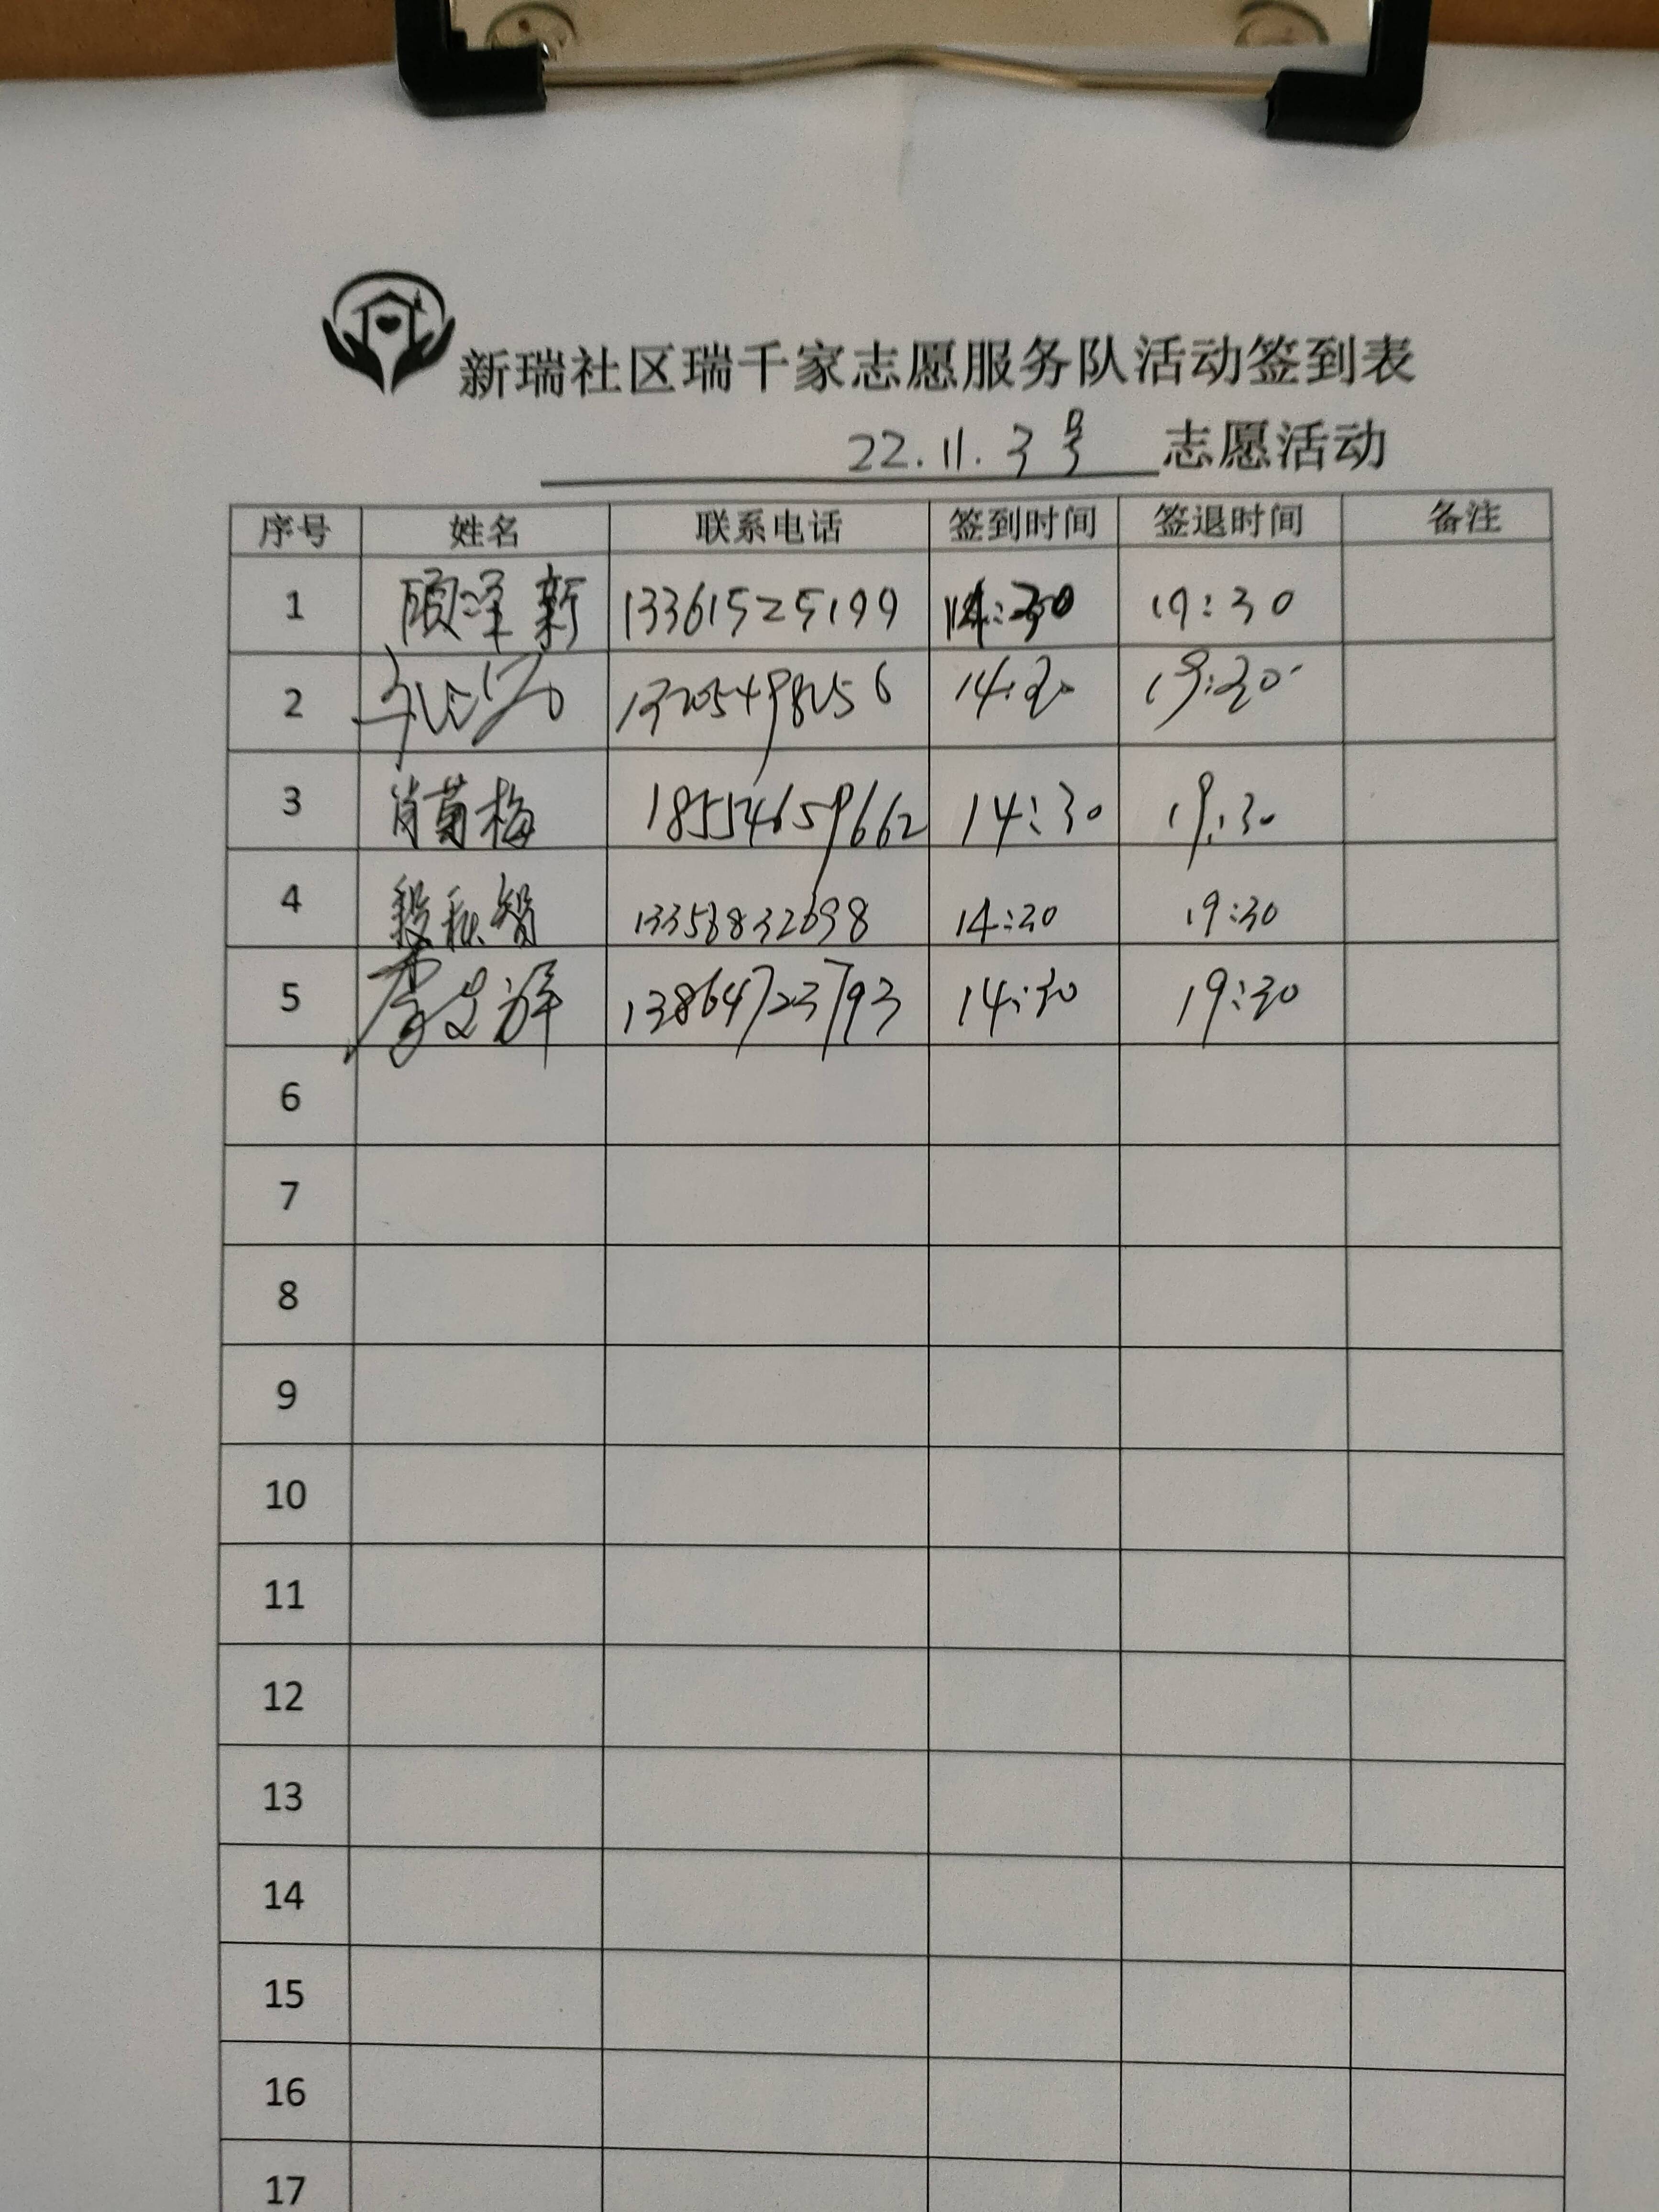 新瑞社区瑞千家志愿服务队活动签到表
22.11.3号 志愿活动
序号 姓名 联系电话 签到时间 签退时间 备注
1 顾泽新 13361525199 14:30 19:30
2 14:30 19:30
3 肖菊梅 18554659662 14:30 19:30
4 14:30 19:30
5 13864723793 14:30 19:30
6
7
8
9
10
11
12
13
14
15
16
17